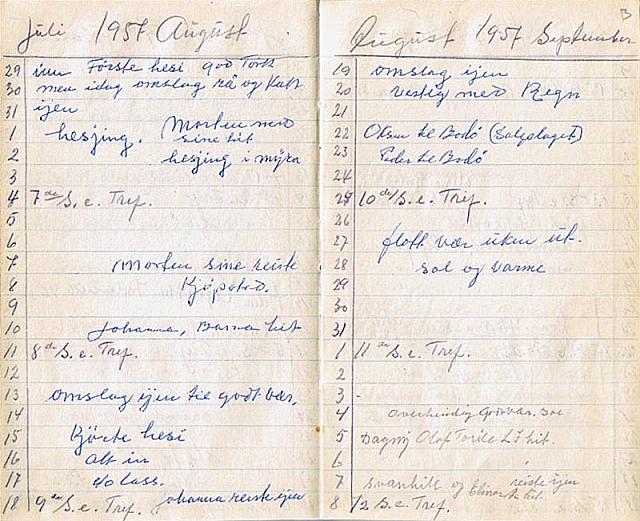 Juli 1957 August
29 inn Første hesi god Tørk
30 men idag omslag Rå og Kalt
31 ijen
1 hesjing. Morten med sine hit
2 hesjing i myra
3
4 7de S. e. Tref.
5
6
7 Morten sine reiste
8 Kjøpsted.
9
10 Johanna, Barna hit
11 8de S. e. Tref.
12
13 omslag ijen til godt vær,
14
15 Kjørte hesi
16 alt in
17 40 lass.
18 9de S. e. Tref. Johanna reiste ijen
3
August 1957 September
19 omslag ijen
20 vestlig med Regn
21
22 Otsen til Bodø (Salgslaget)
23 Peder til Bodø
24
25 10de S. e. Tref.
26
27 flott vær uken ut.
28 sol og varme
29
30
31
1 11 S. e. Tref.
2
3
4 overhendig Gråvær, sol
5 Dagny Olaf Torill L? hit.
6
7 Svanhilt og reiste ijen
8 12 S. e. Tref.